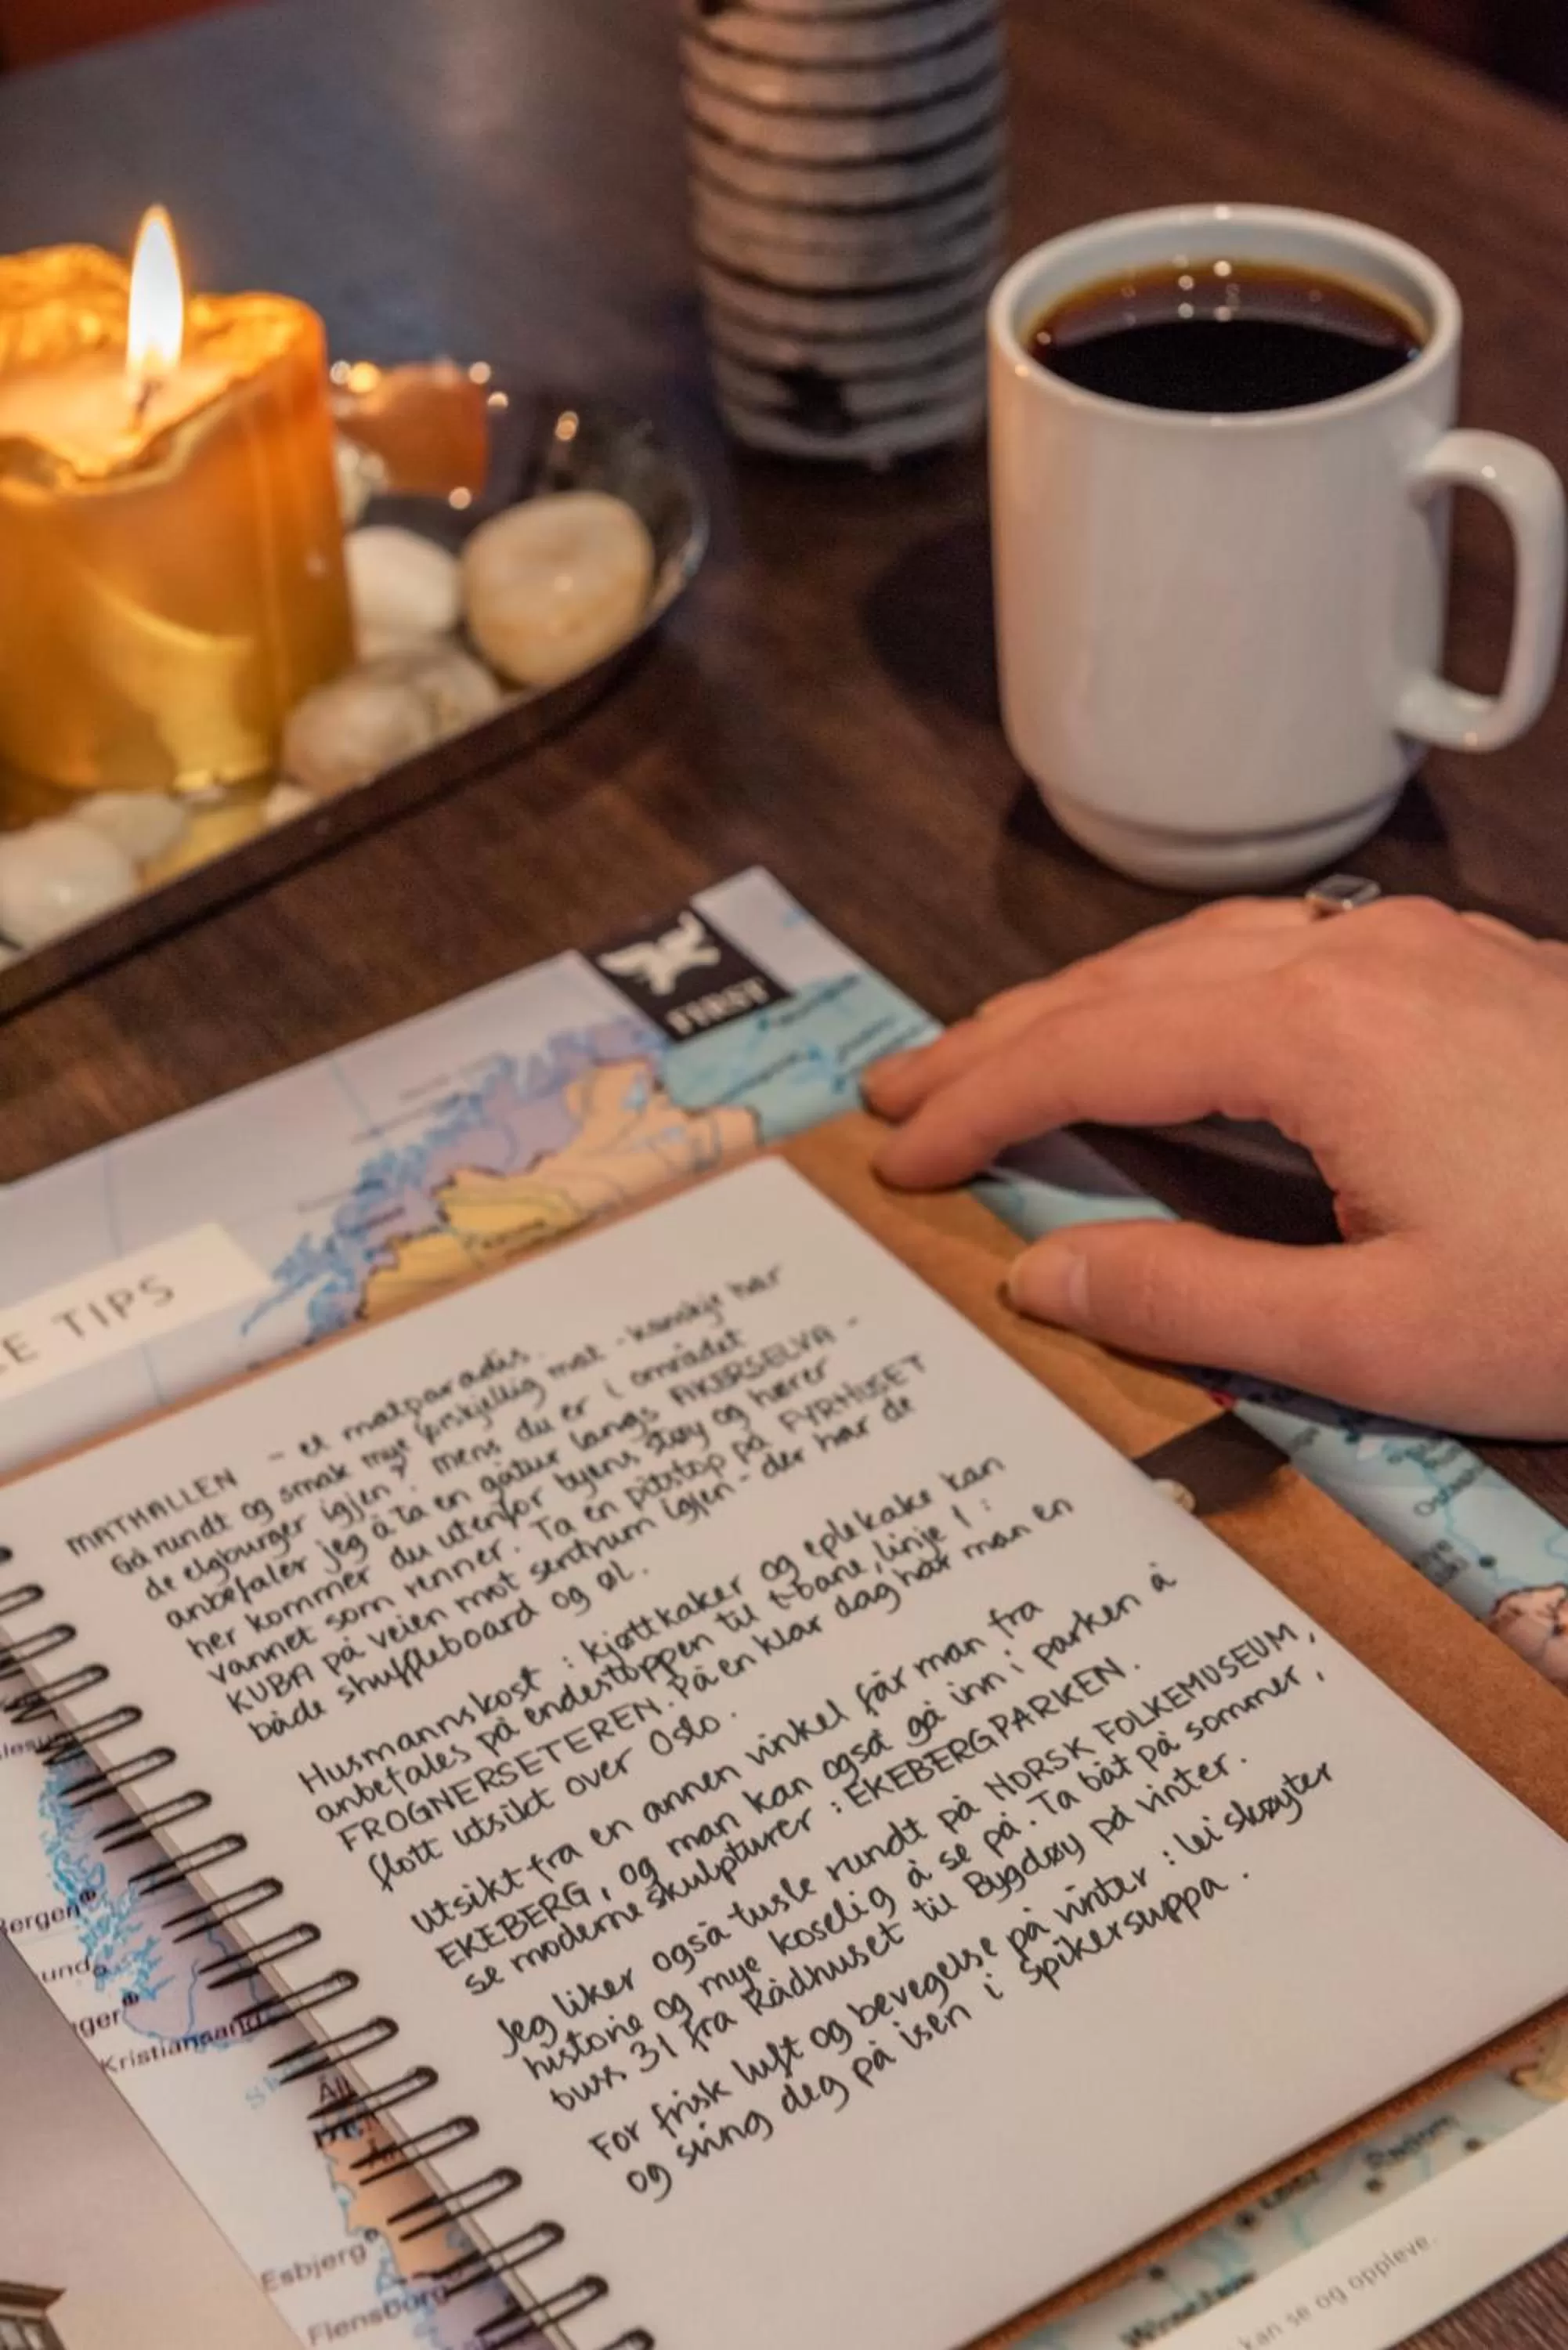 FIRST
E TIPS
MATHALLEN - et matparadis.
Gå rundt og smak mye forskjellig mat - kanskje har
de elgburger igjen? Mens du er i området
anbefaler jeg å ta en gåtur langs AKERSELVA -
her kommer du utenfor byens støy og hører
vannet som renner. Ta en pitstop på FYRHUSET
KUBA på veien mot sentrum igjen - der har de
både shuffleboard og øl.
Husmannskost: kjøttkaker og eplekake kan
anbefales på endestoppen til t-bane, linje 1:
FROGNERSETEREN. På en klar dag har man en
flott utsikt over Oslo.
Utsikt fra en annen vinkel får man fra
EKEBERG, og man kan også gå inn i parken å
se moderne skulpturer: EKEBERGPARKEN.
Jeg liker også tusle rundt på NORSK FOLKEMUSEUM,
historie og mye koselig å se på. Ta båt på sommer,
buss 31 fra Rådhuset til Bygdøy på vinter.
For frisk luft og bevegelse på vinter: lei skøyter
og sving deg på isen i Spikersuppa.
Bergen
Kristiansand
Esbjerg
Flensborg
kan se og oppleve.